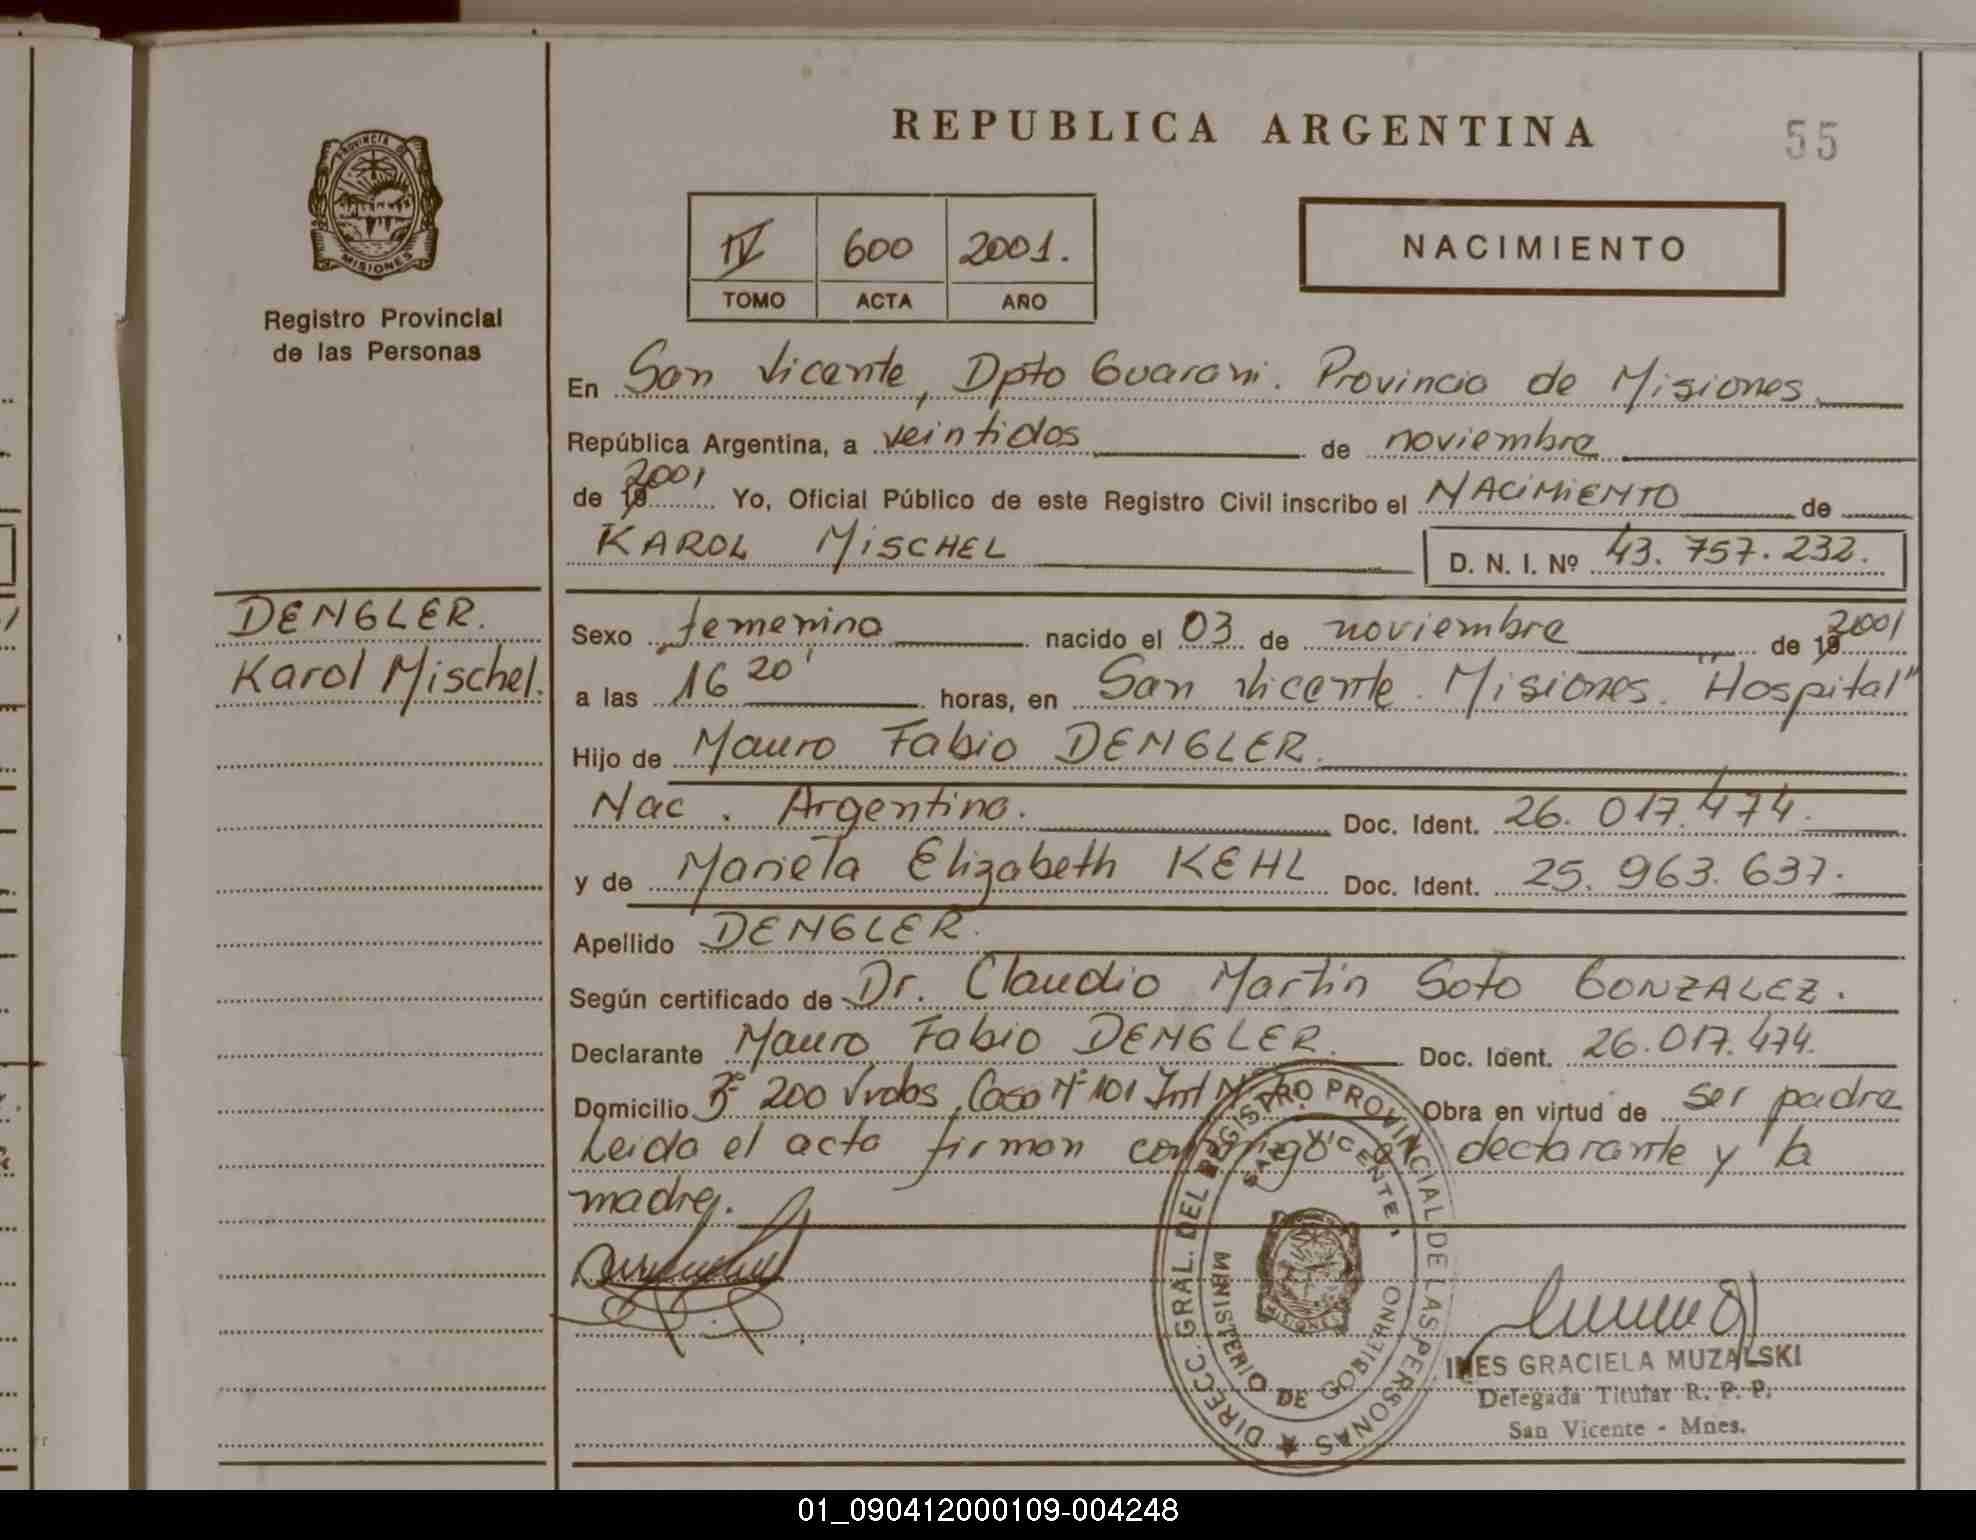 REPUBLICA ARGENTINA
55
PROVINCIA DE MISIONES
Registro Provincial
de las Personas
IV 600 2001.
TOMO ACTA AÑO
NACIMIENTO
En San Vicente, Dpto Guarani. Provincia de Misiones
República Argentina, a veintidos de noviembre
de 19 2001 Yo, Oficial Público de este Registro Civil inscribo el NACIMIENTO de
KAROL MISCHEL D. N. I. Nº 43.757.232.
DENGLER.
Karol Mischel.
Sexo femenino nacido el 03 de noviembre de 19 2001
a las 16 20' horas, en San Vicente. Misiones. "Hospital"
Hijo de Mauro Fabio DENGLER.
Nac. Argentina. Doc. Ident. 26.017.474.
y de Mariela Elizabeth KEHL Doc. Ident. 25.963.637.
Apellido DENGLER.
Según certificado de Dr. Claudio Martin Soto GONZALEZ.
Declarante Mauro Fabio DENGLER. Doc. Ident. 26.017.474.
Domicilio Bº 200 Vvdas, Casa Nº 101 Obra en virtud de ser padre
Leida el acta firman conmigo el declarante y la
madre.
DIRECC. GRAL. DEL REGISTRO PROVINCIAL DE LAS PERSONAS
SAN VICENTE,
MINISTERIO DE GOBIERNO
MISIONES
INES GRACIELA MUZALSKI
Delegada Titular R. P. P.
San Vicente - Mnes.
01_090412000109-004248